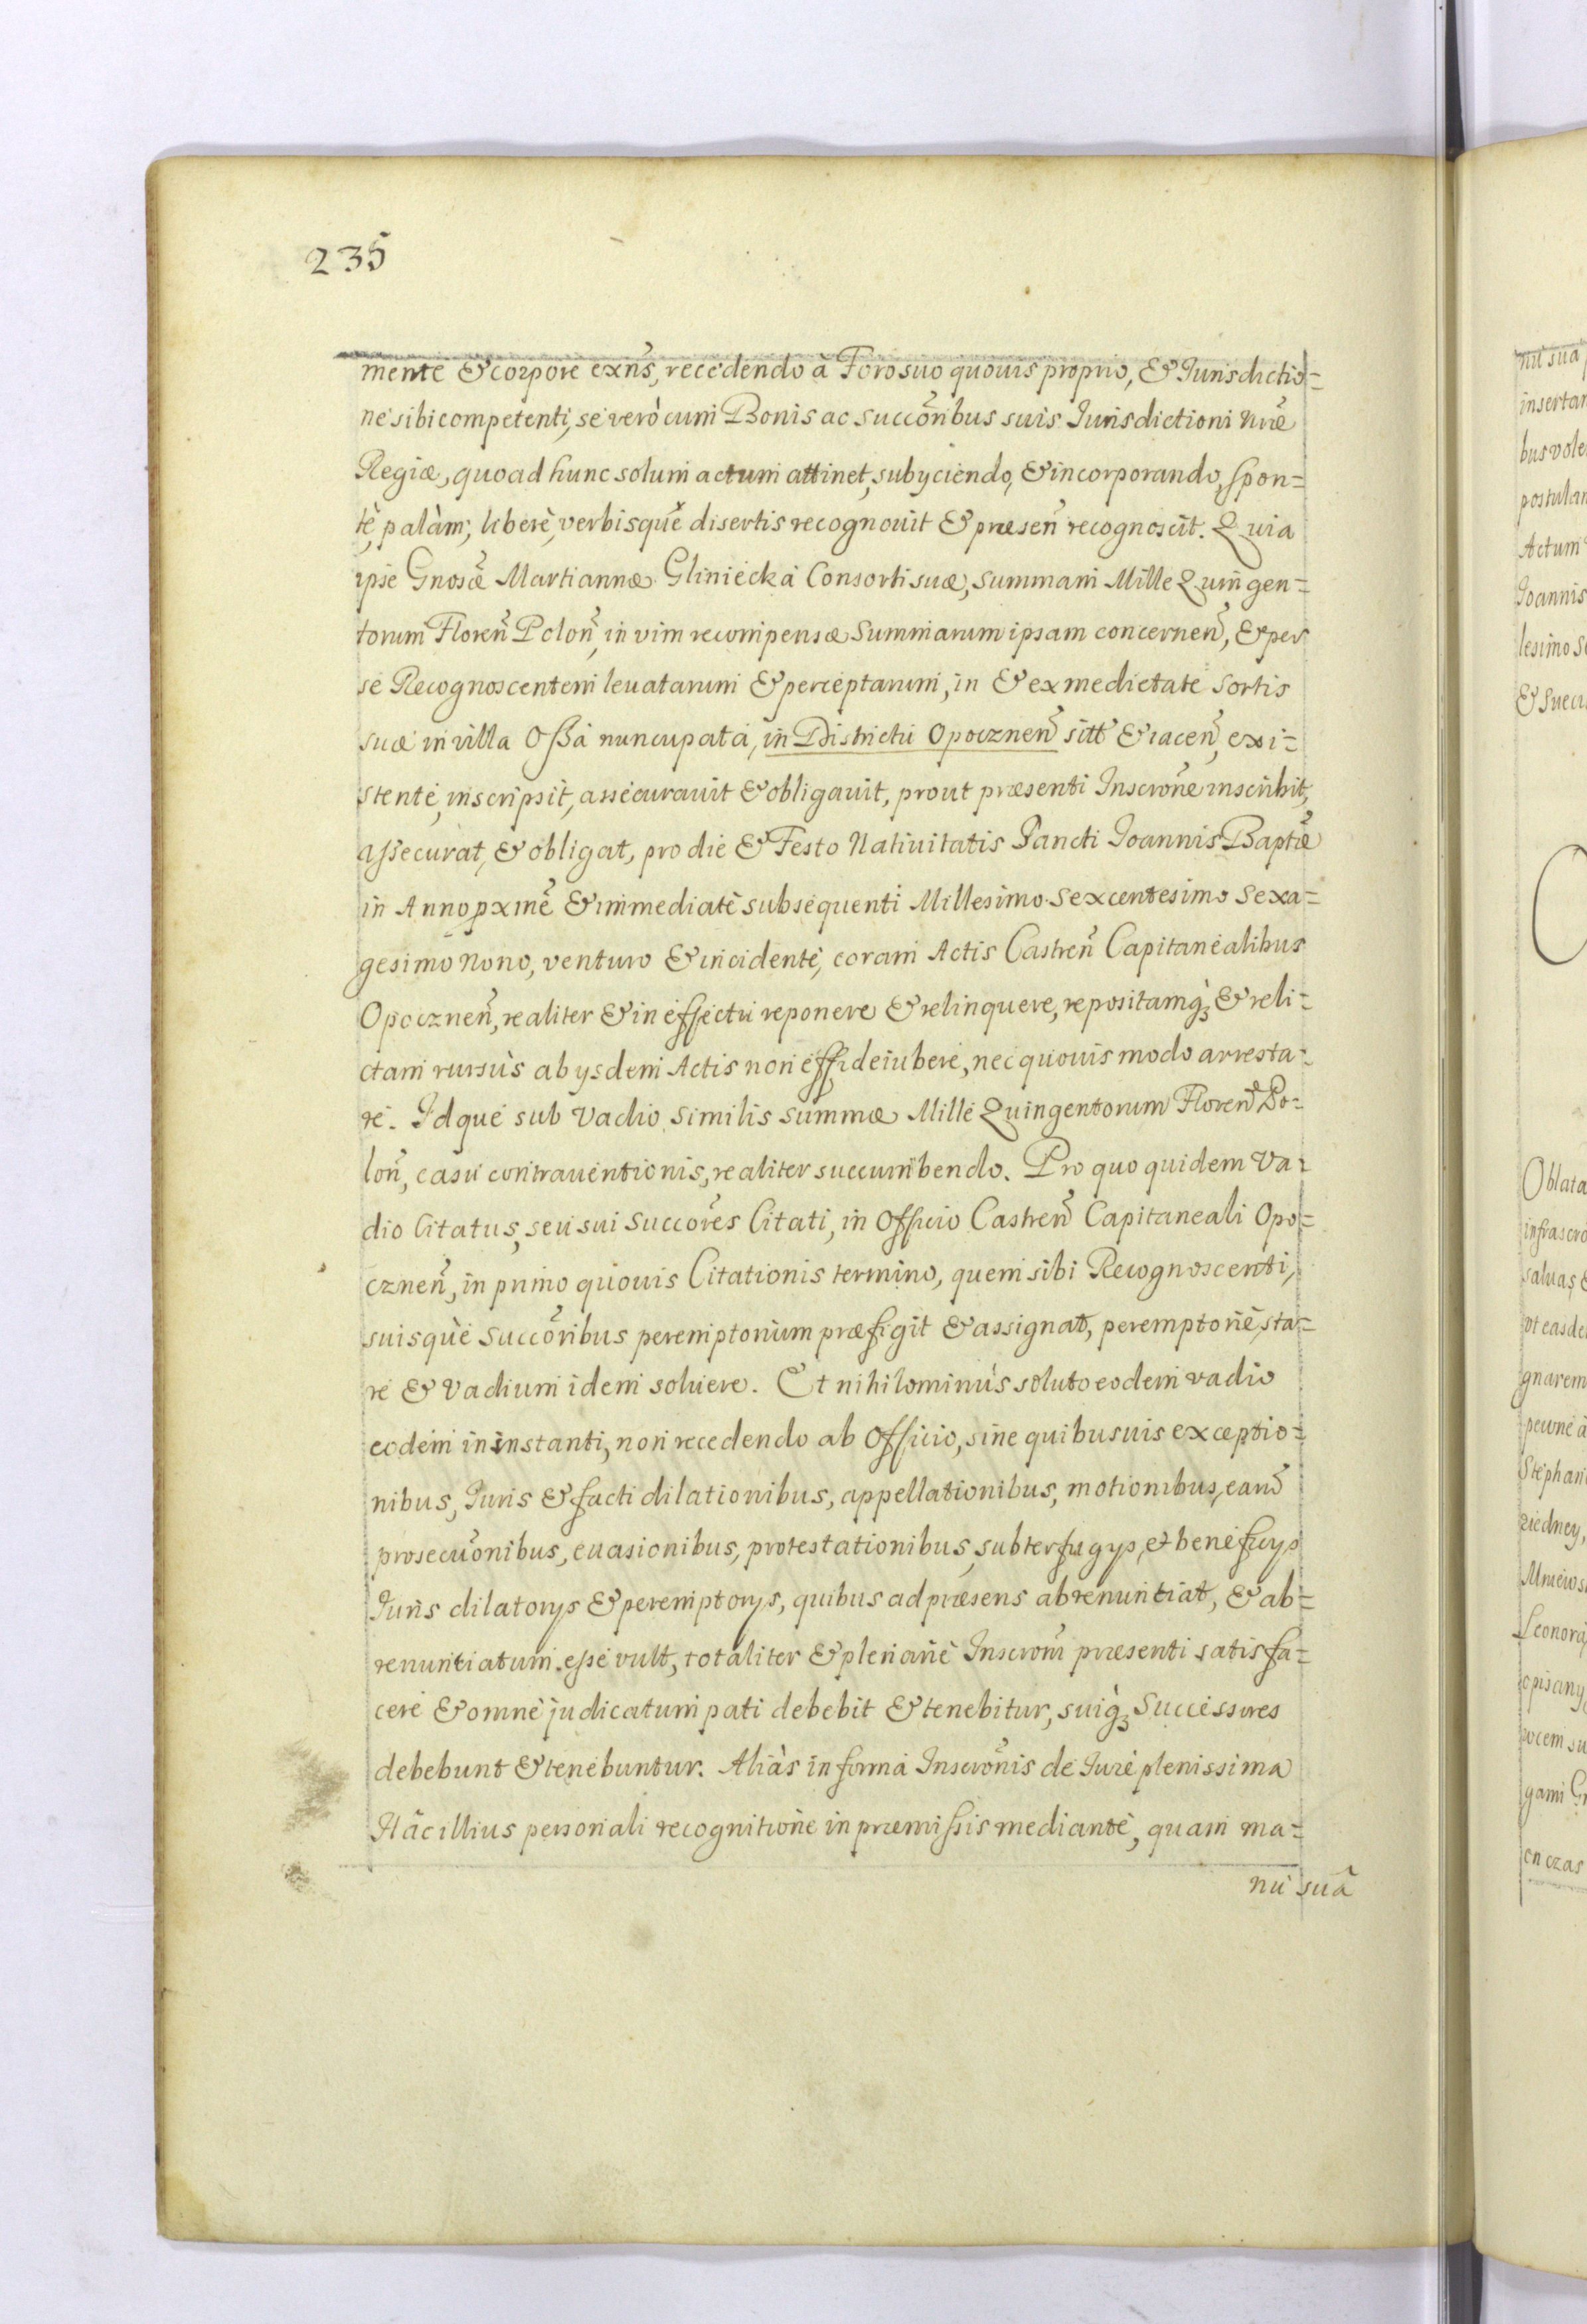 235
mente & corpore exñs, recedendo à Foro suo quouis proprio, & Iurisdictio=
ne sibi competenti, se verò cum Bonis ac succõribus suis Iurisdictioni nr̃æ
Regiæ, quoad hunc solum actum attinet, subyciendo, & incorporando, spon=
tè, palàm, liberè, verbisque disertis recognouit & præseñ recognoscit. Quia
ipse Gnosæ Martiannæ Gliniecka Consorti suæ, summam Mille Quingen=
torum Floreñ Poloñ, in vim recompensæ Summarum ipsam concerneñ, & per
se Recognoscentem leuatarum & perceptarum, in & ex medietate Sortis
suæ in villa Ossa nuncupata, in Districtu Opoczneñ sitt & iaceñ, exi=
stente, inscripsit, assecurauit & obligauit, prout præsenti Inscrõne inscribit,
assecurat, & obligat, pro die & Festo Natiuitatis Sancti Ioannis Baptæ
in Anno pxmẽ & immediatè subsequenti Millesimo Sexcentesimo Sexa=
gesimo Nono, venturo & incidente, coram Actis Castreñ Capitanealibus
Opoczneñ, realiter & in effectu reponere & relinquere, repositamq́ꝫ & reli=
ctam rursùs ab ysdem Actis non effideiubere, nec quouis modo arresta=
re. Idque sub vadio similis summæ Mille Quingentorum Floreñ Po=
loñ, casu contrauentionis, realiter succumbendo. Pro quo quidem va=
dio Citatus, seu sui Succores Citati, in Officio Castreñ Capitaneali Opo=
czneñ, in primo quouis Citationis termino, quem sibi Recognoscenti,
suisque succõribus peremptorium præfigit & assignat, peremptoriè, sta=
re & vadium idem soluere. Et nihilominùs soluto eodem vadio
eodem in instanti, non recedendo ab Officio, sine quibusuis exceptio=
nibus, Iuris & facti dilationibus, appellationibus, motionibus, earũ
prosecũonibus, euasionibus, protestationibus, subterfugys, et beneficys
Iuris dilatorys & peremptorys, quibus ad præsens abrenuntiat, & ab=
renuntiatum esse vult, totaliter & plenariè Inscrom̃ præsenti satisfa=
cere & omne judicatum pati debebit & tenebitur, suiq́ꝫ Successores
debebunt & tenebuntur. Aliàs in forma Inscrõnis de Iure plenissima
Hâc illius personali recognitione in præmissis mediante, quam ma=
nu suâ